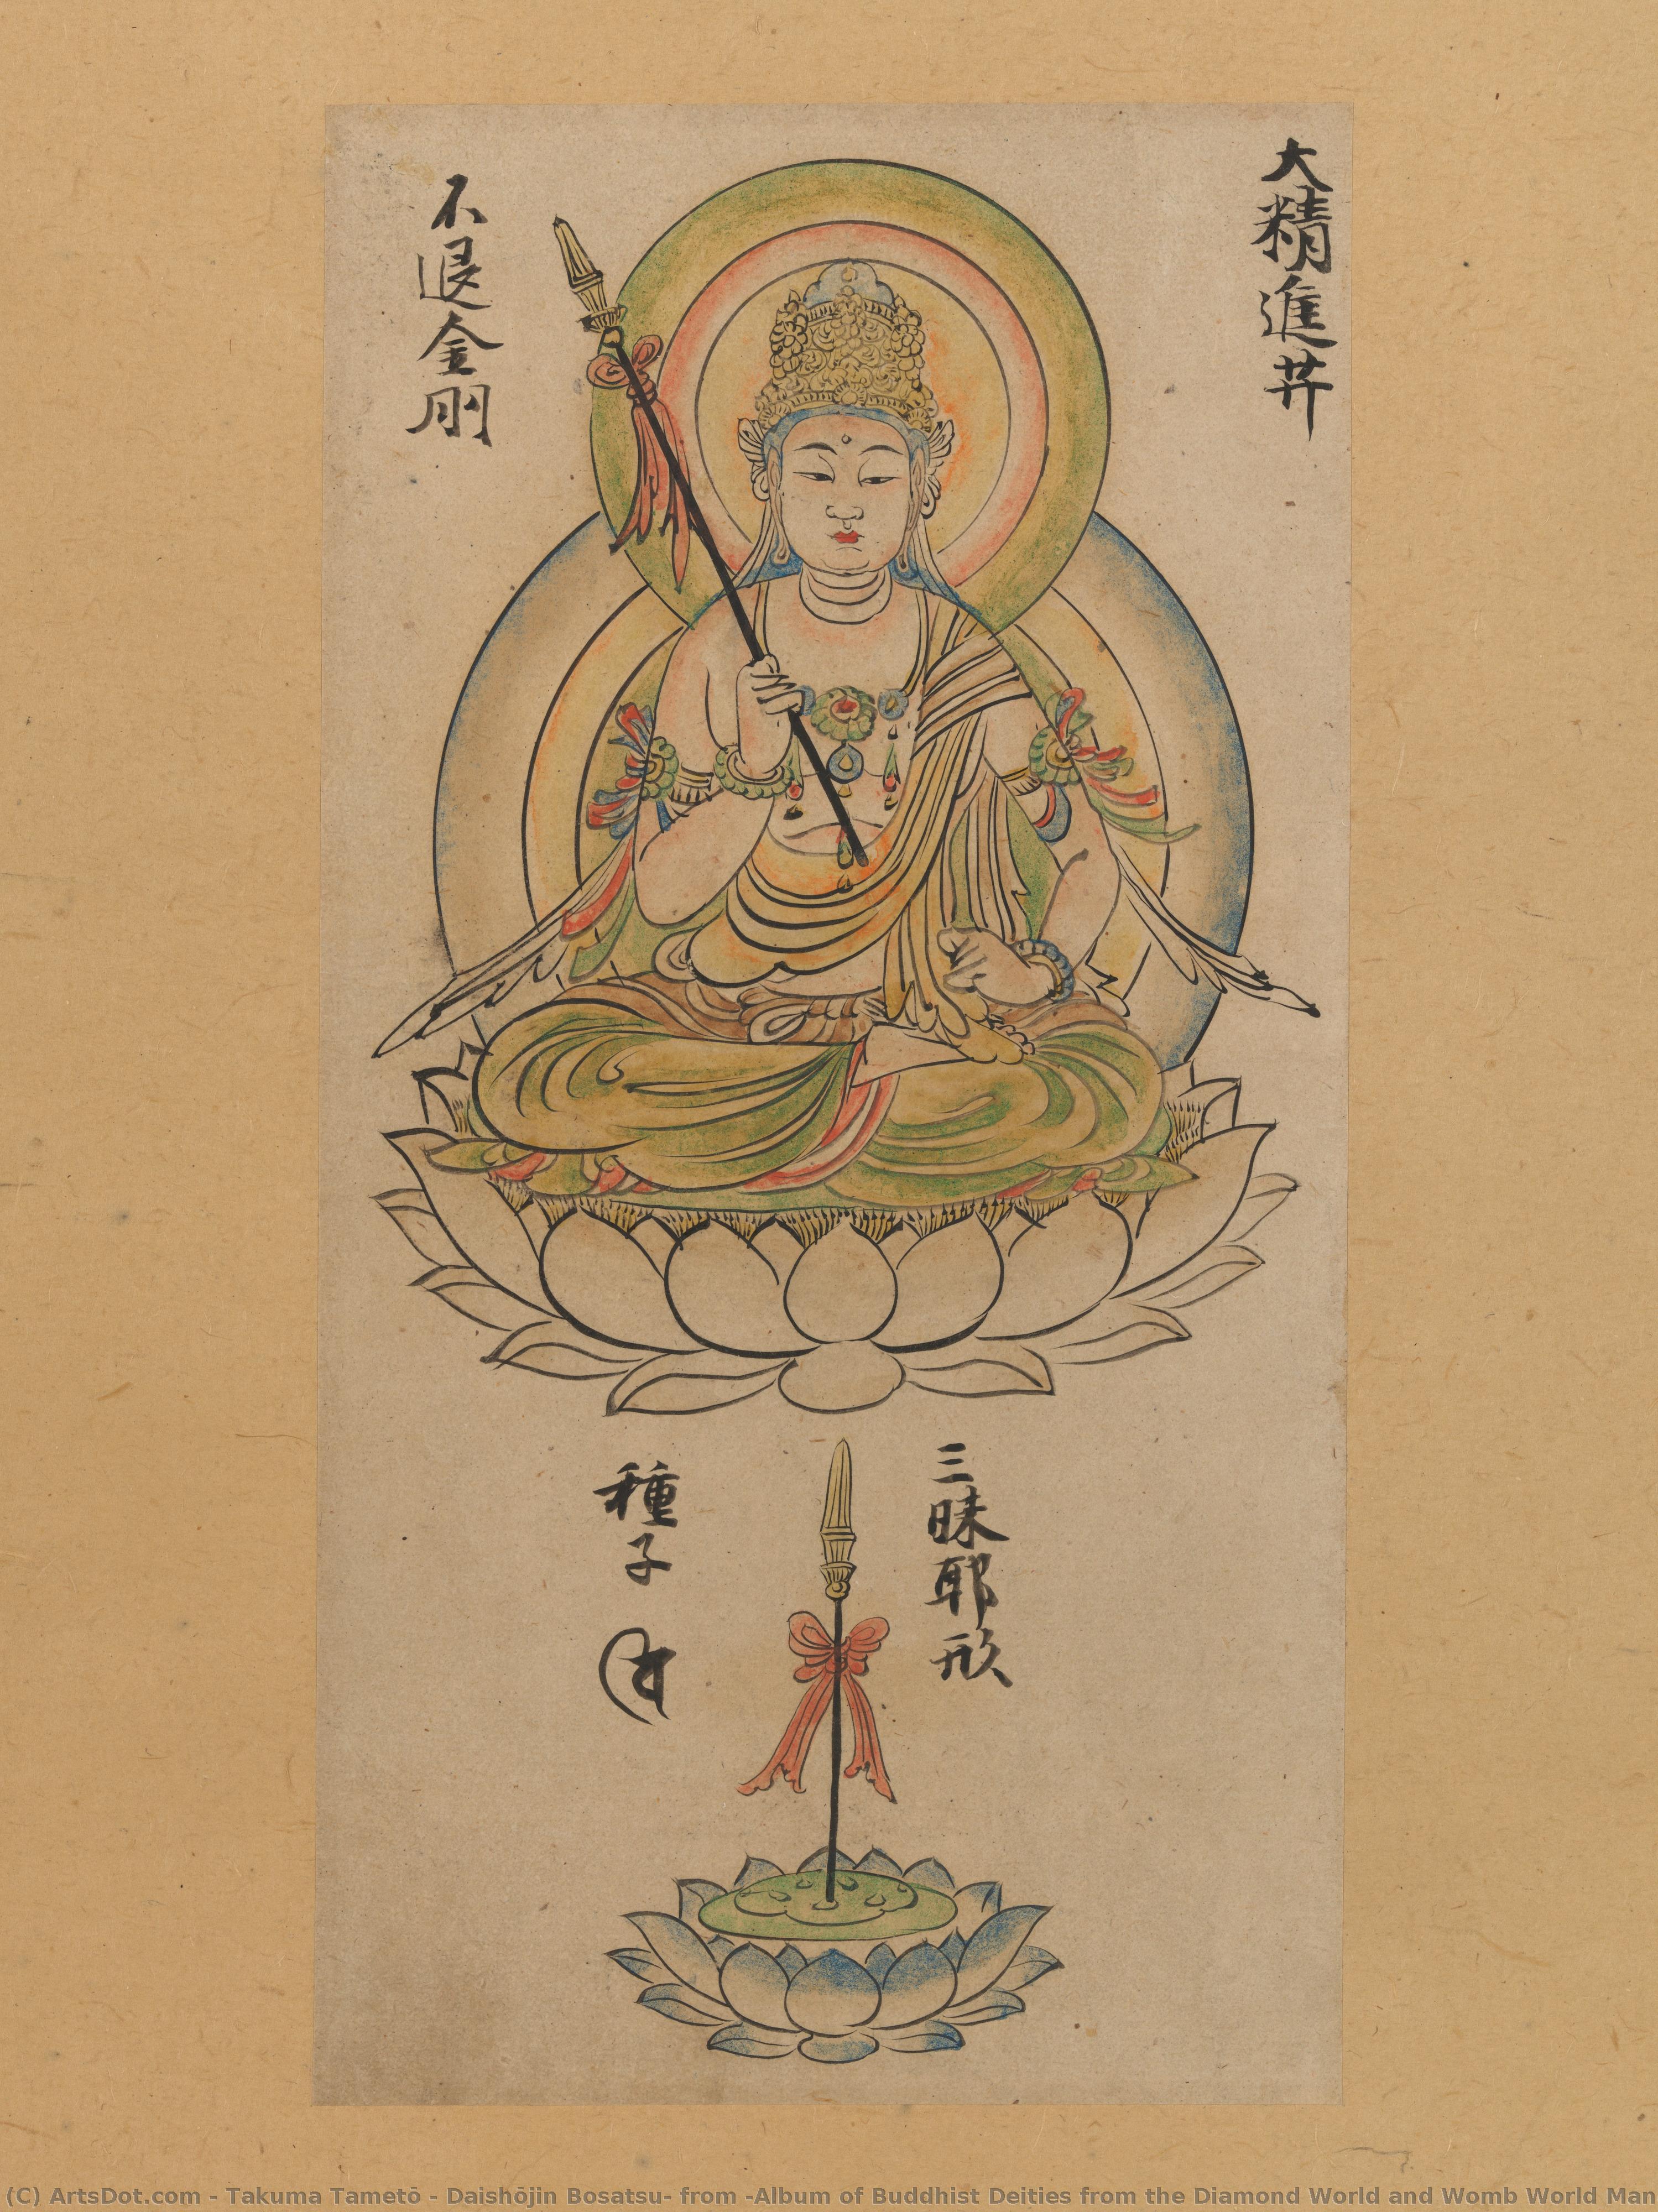 大精進䒑
不退金剛
三昧耶形
種子
(C) ArtsDot.com - Takuma Tametō - Daishōjin Bosatsu- from -Album of Buddhist Deities from the Diamond World and Womb World Man